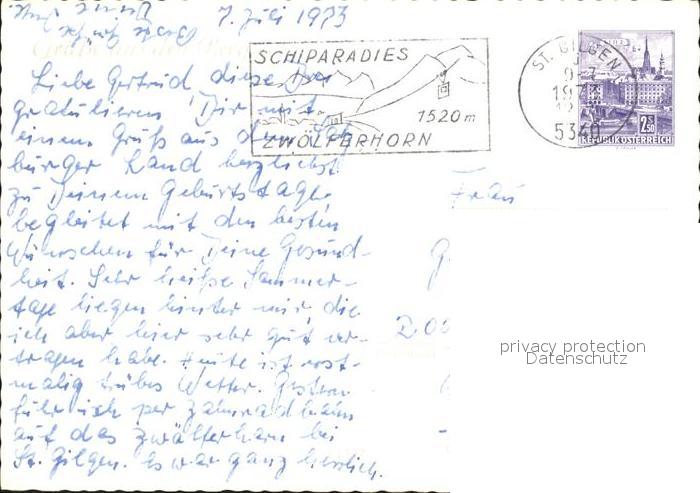 7. Juli 1973
SCHIPARADIES
1520 m
ZWÖLFERHORN
ST. GILGEN
5340
2.50
REPUBLIK ÖSTERREICH
Liebe Gertrud, diese
gratulieren Dir mit
einem Gruß aus dem Salz
burger Land herzlichst
zu Deinem Geburtstage
begleitet mit den besten
Wünschen für Deine Gesund-
heit. Sehr heiße Sommer-
tage liegen hinter mir, die
ich aber hier sehr gut ver-
tragen habe. Heute ist erst-
malig trübes Wetter. Gestern
fuhr ich per Zahnradbahn
auf das Zwölferhorn bei
St. Gilgen. Es war ganz herrlich.
Frau
G
privacy protection
Datenschutz